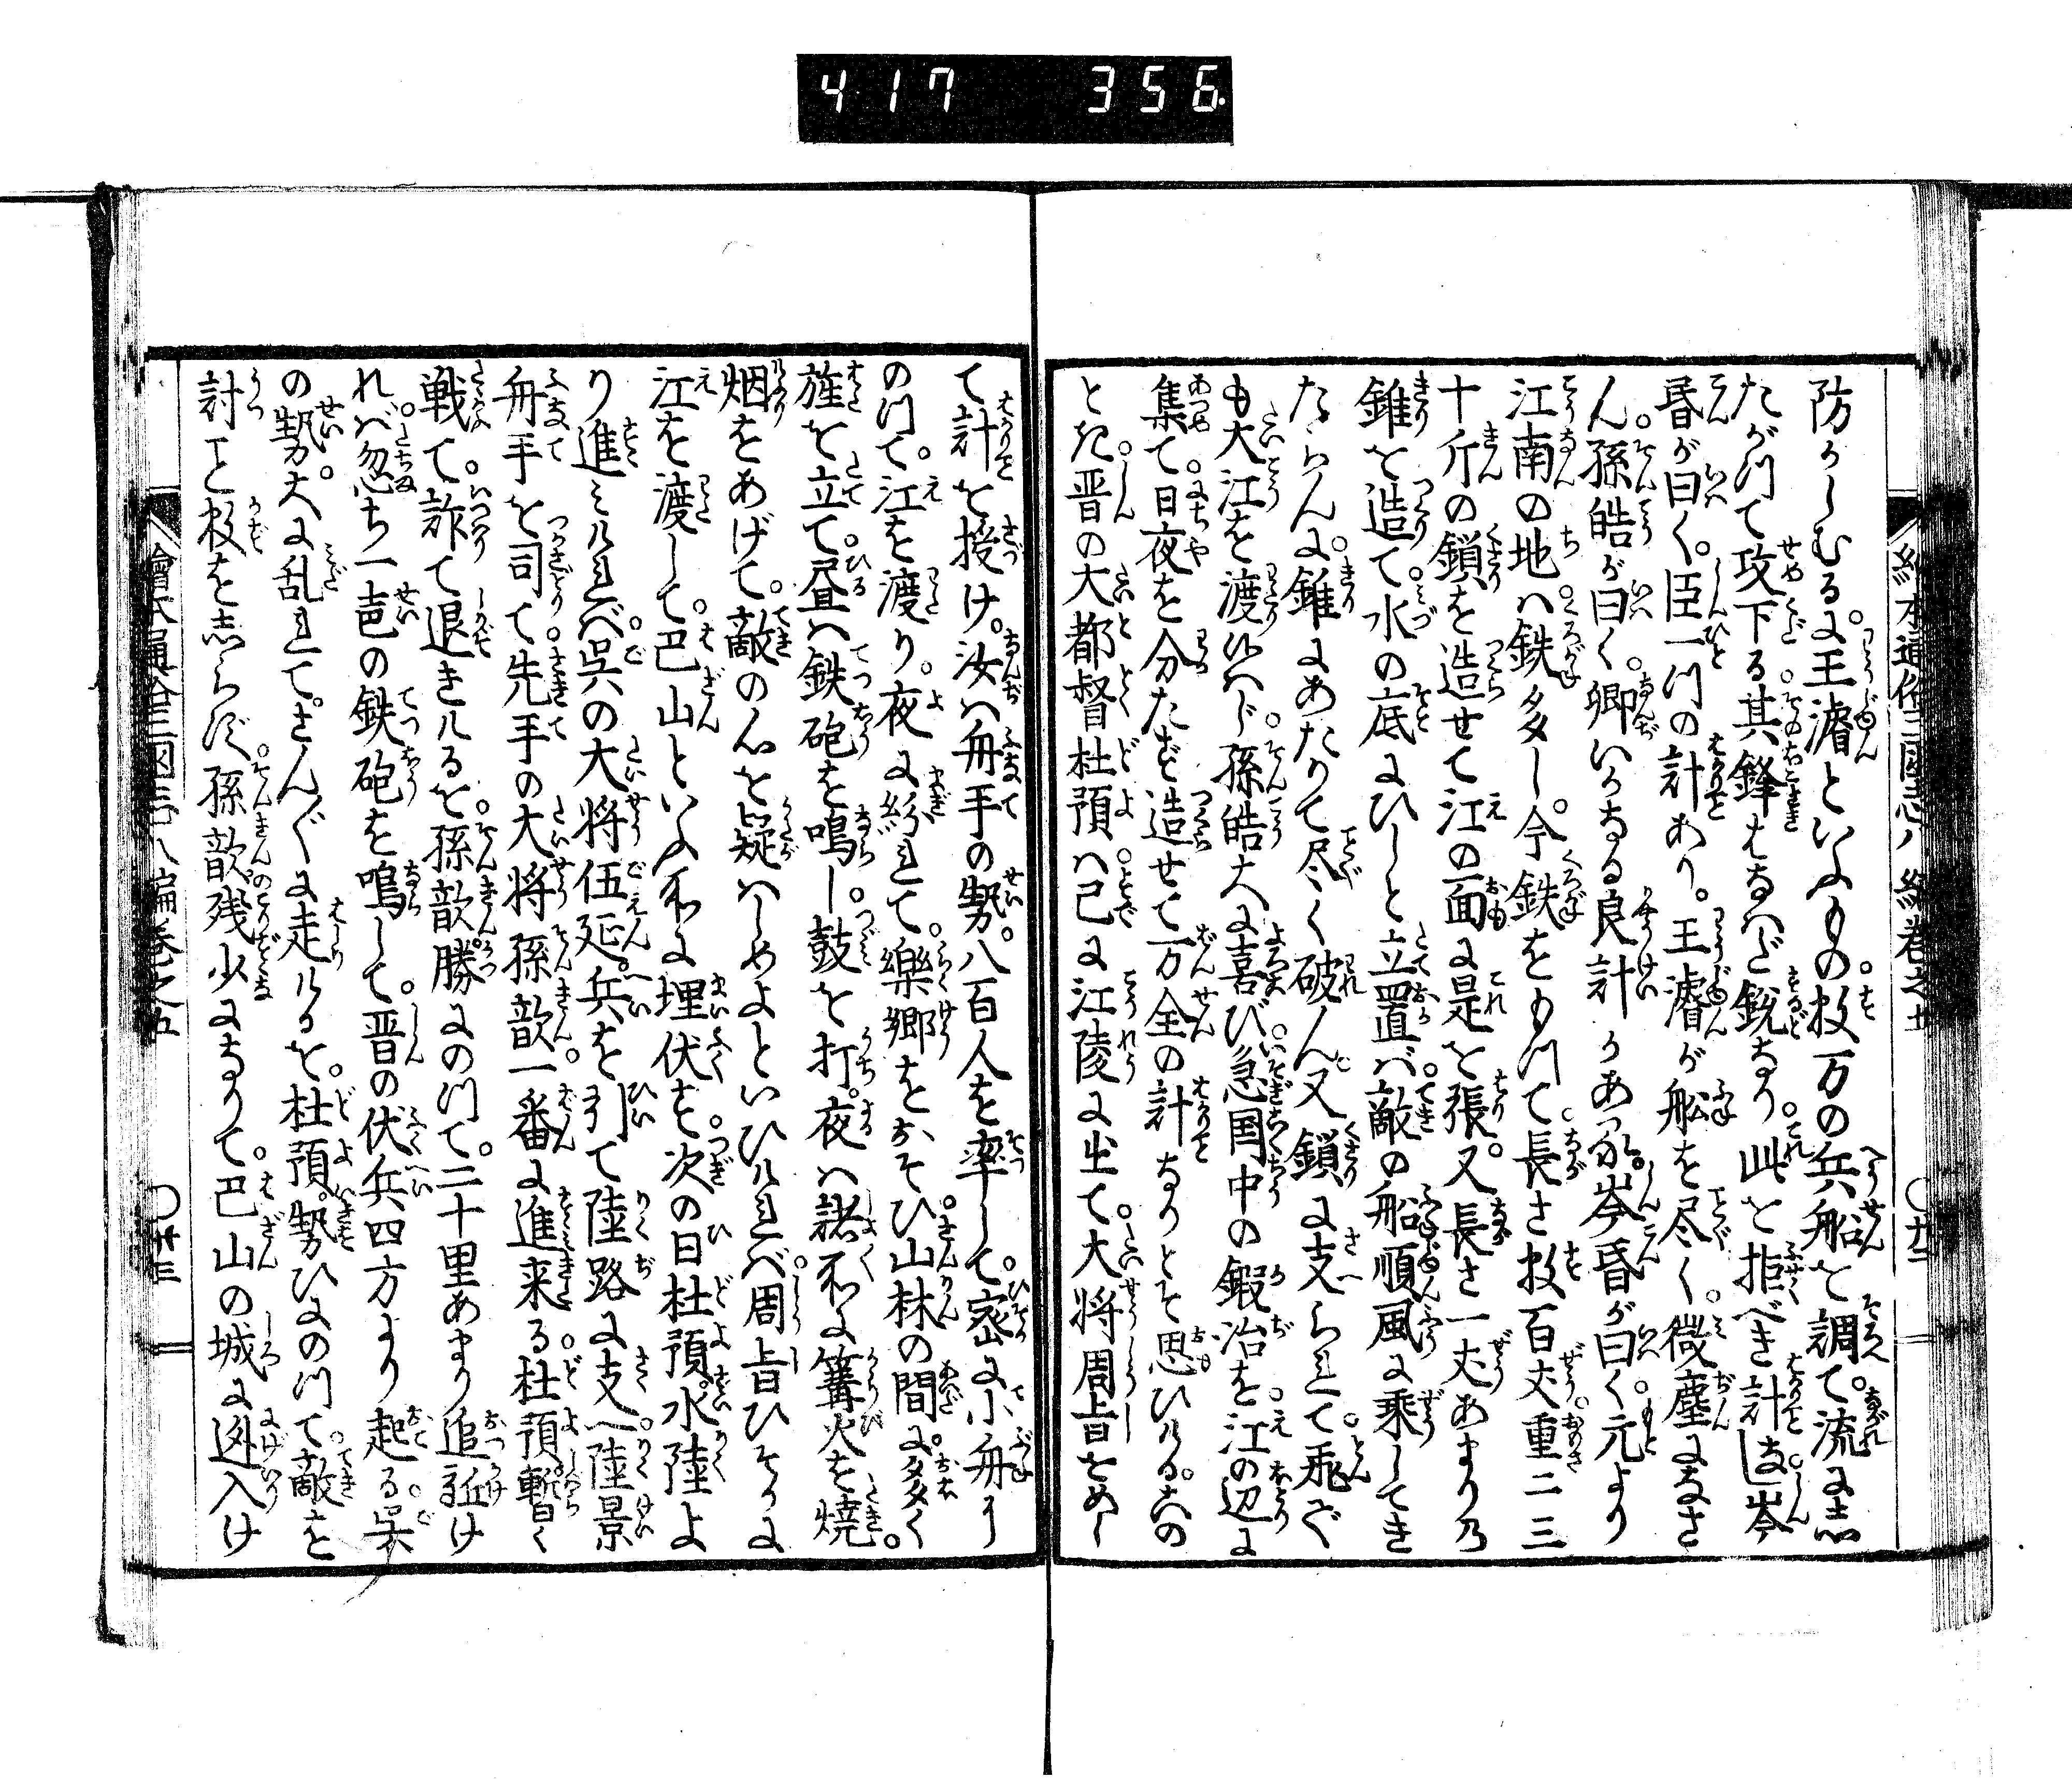 417 356
防かしむるに。王濬といふもの。数万の兵船を調て。流に志
たがつて攻下る其鋒はなはだ鋭なり。此を拒べき計はし。岑
昏が曰く。臣一つの計あり。王濬が船を尽く。微塵になさ
ん。孫皓が曰く。卿いかなる良計かある。岑昏が曰く。元より
江南の地は鉄多し。今鉄をもつて。長さ数百丈。重二三
十斤の鎖を造せて江の面に是を張。又長さ一丈あまり乃
錐を造て。水の底にひしと立置ば。敵の船順風に乗してき
たらんに。錐にあたりて尽く破ん。又鎖に支られて。飛で
も大江を渡候べし。孫皓大に喜び。急国中の鍛冶を。江の辺に
集て。日夜を分たず造せて万全の計なりとぞ思ひける。かの
とき。晋の大都督杜預は。已に江陵に出て。大将周旨をめし
て計を授け。汝は舟手の勢。八百人を率して。密に小舟に
のつて。江を渡り。夜に紛れて。楽郷をおそひ。山林の間に。多く
旌を立て。昼は鉄砲を鳴し。鼓を打。夜は諸所に篝火を焼。
烟をあげて。敵の心を疑はしめよといひければ。周旨ひそかに
江を渡して。巴山といふ所に埋伏す。次の日杜預。水陸よ
り進みければ。呉の大将伍延。兵を引て陸路に支へ。陸景
舟手を司て。先手の大将孫歆。一番に進来る。杜預暫く
戦て。詐て退きけるを。孫歆。勝にのつて。二十里あまり追詰け
れば。忽ち一声の鉄砲を鳴して。晋の伏兵四方より起る。呉
の勢。大に乱れて。さんざんに走けるを。杜預。勢ひにのつて。敵を
討こと数を志らず。孫歆残少になりて。巴山の城に逃入け